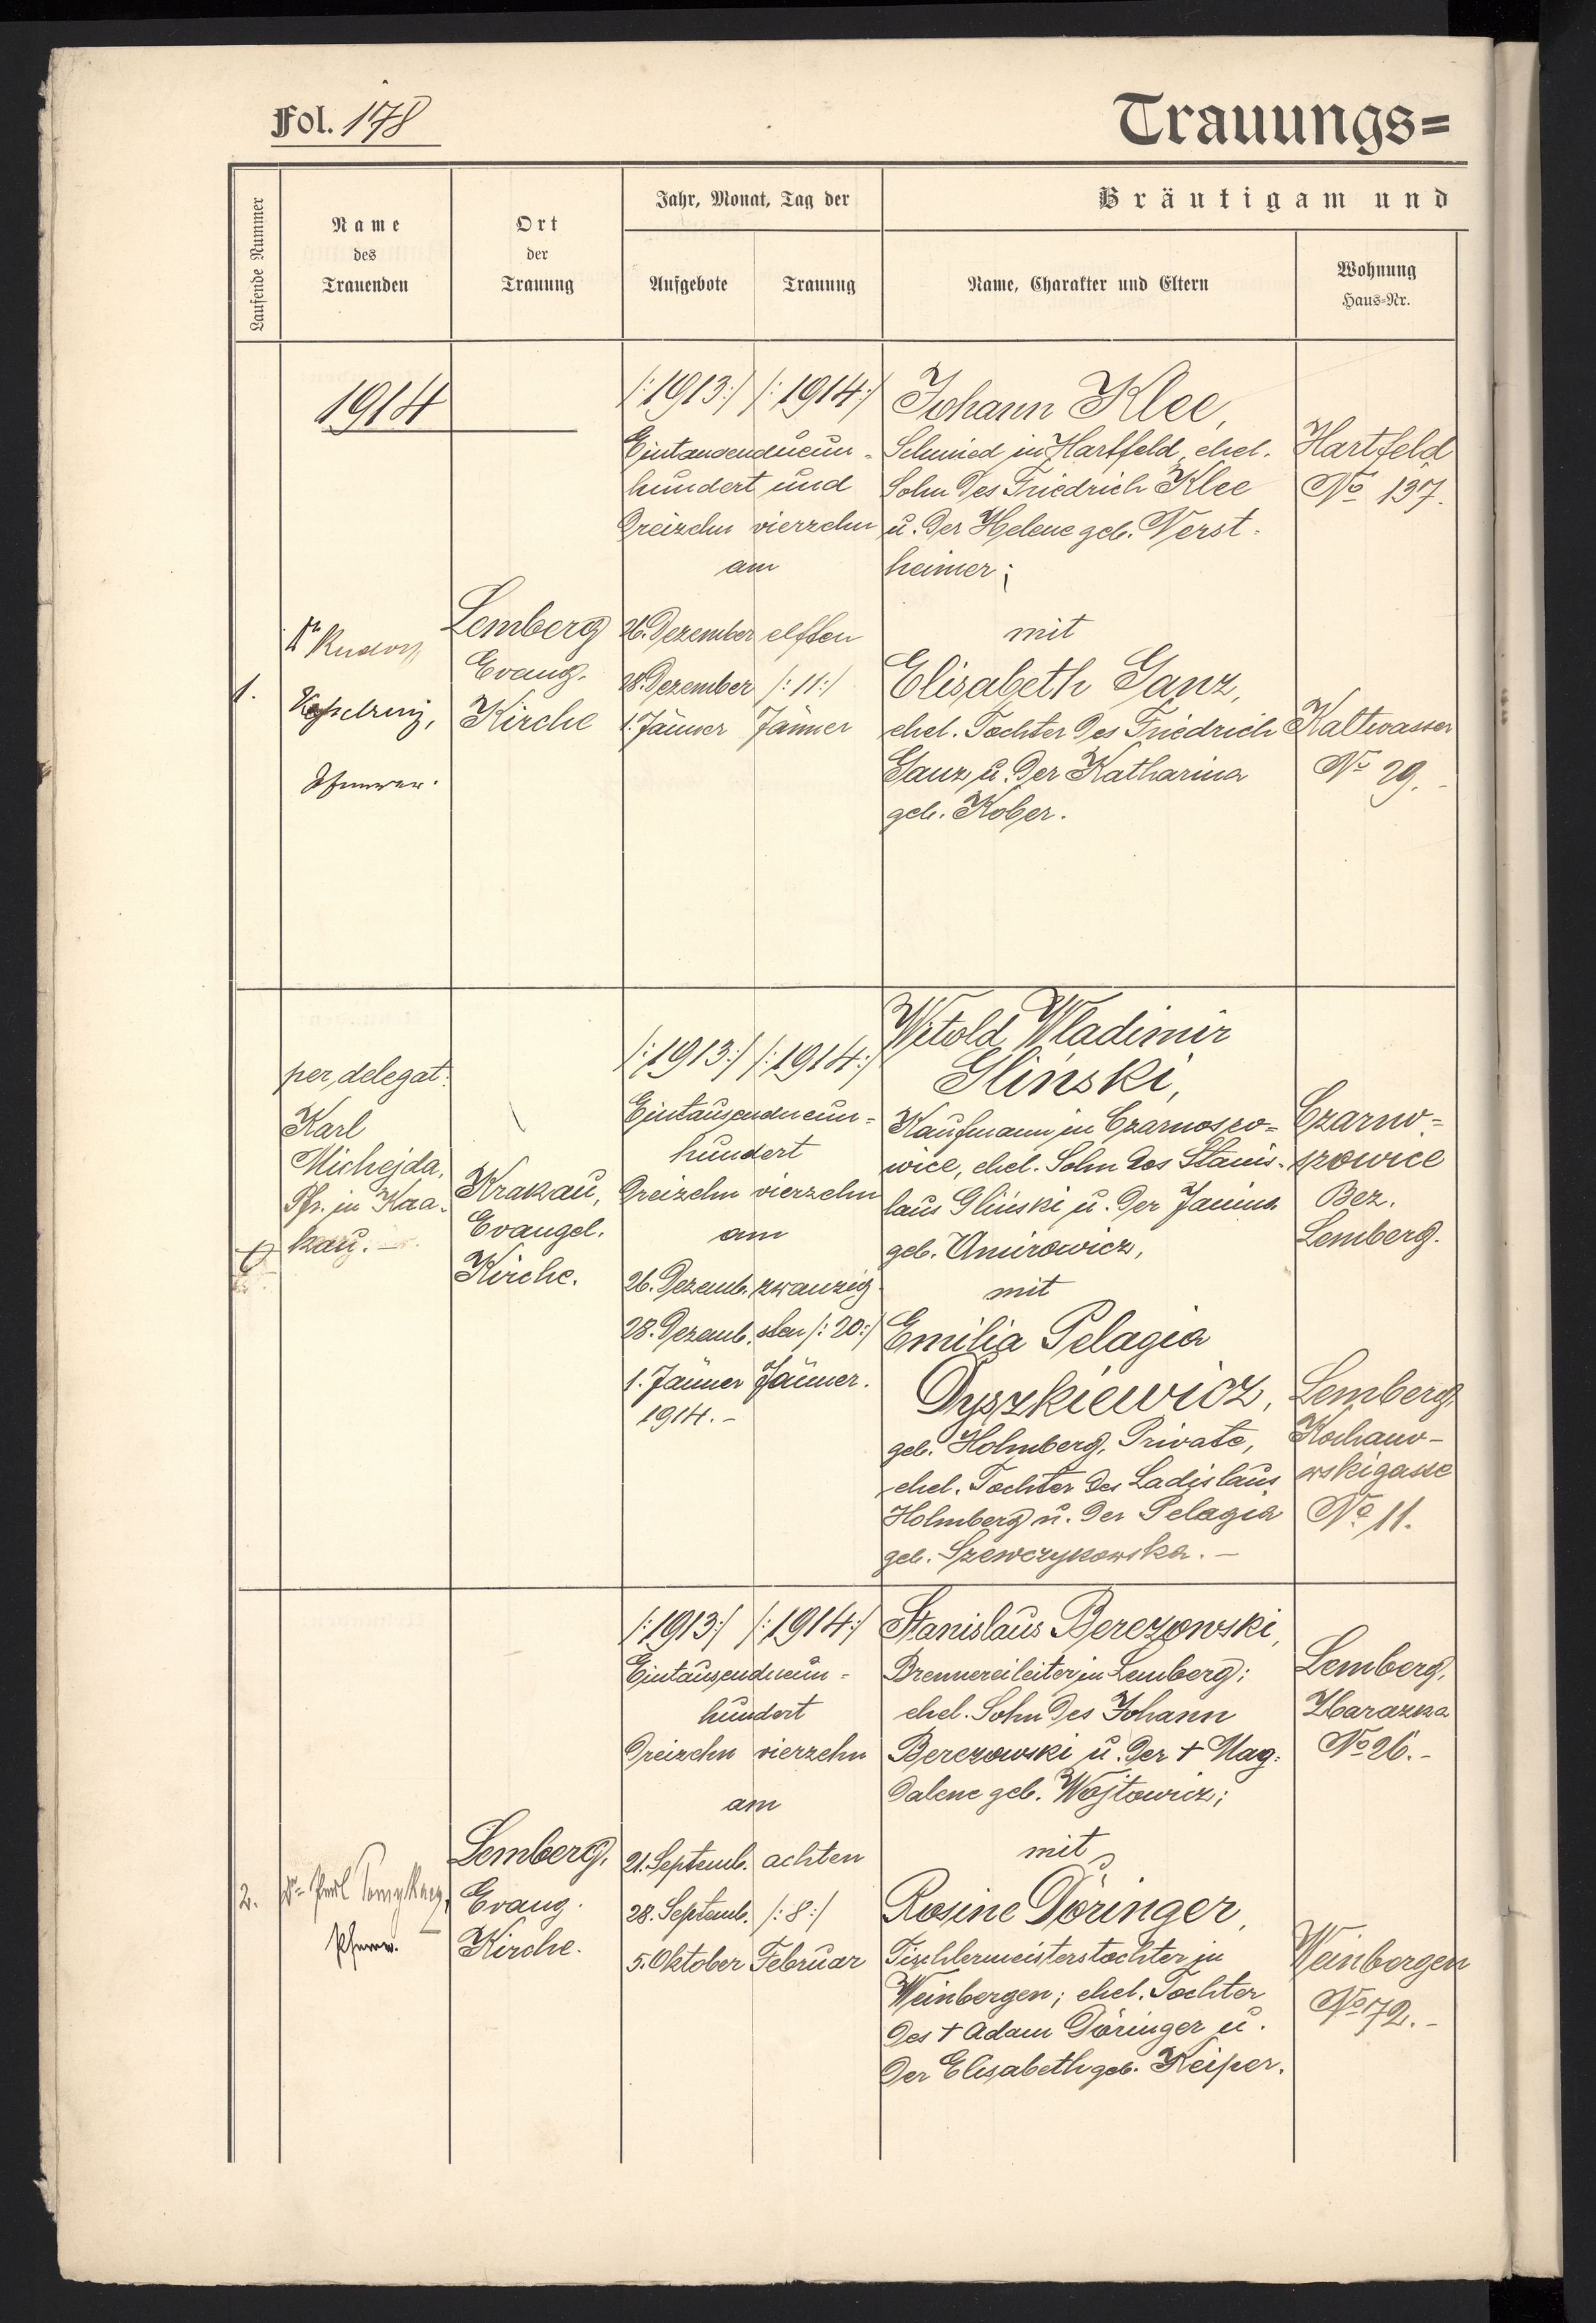 Fol. 178
Trauungs=
Laufende Nummer
Name
des
Trauenden
Ort
der
Trauung
Jahr, Monat, Tag der
Aufgebote
Trauung
Bräutigam und
Name, Charakter und Eltern
Wohnung
Haus-Nr.
1914
1.
Dr Rudolf
Lemberg
Evang.
Kirche
/:1913:/ /:1914:/
Eintausendneun-
hundert und
dreizehn vierzehn
am
26. Dezember elften
28. Dezember /:11:/
1. Jänner Jänner
Johann Klee,
Schmied in Hartfeld, ehel.
Sohn des Friedrich Klee
u. der Helene geb. Verst-
heimer;
mit
Elisabeth Ganz,
ehel. Tochter des Friedrich
Ganz u. der Katharina
geb. Kober.
Hartfeld
No 137.
Kaltwasser
No 29.-
per delegat:
Karl
Michejda,
Pfr. in Kra-
kau.-
Krakau,
Evangel.
Kirche.
/:1913:/ /:1914:/
Eintausendneun=
hundert
dreizehn vierzehn
am
26. Dezemb. zwanzig-
28. Dezemb. sten /:20:/
1. Jänner Jänner.
1914.-
Witold Wladimir
Gliński,
Kaufmann in Czarnoszo=
wice, ehel. Sohn des Stanis-
laus Gliński u. der Janina
geb. Amirowicz,
mit
Emilia Pelagia
Dyszkiewicz,
geb. Holmberg, Private,
ehel. Tochter des Ladislaus
Holmberg u. der Pelagia
geb. Szewczykowska.-
Czarno=
szowice
Bez.
Lemberg.
Lemberg,
Kochano-
wskigasse
No 11.
2.
Dr Paul
Pfarrv.
Lemberg,
Evang.
Kirche.
/:1913:/ /:1914:/
Eintausendneun-
hundert
dreizehn vierzehn
am
21. Septemb. achten
28. Septemb. /:8:/
5. Oktober Februar
Stanislaus Berezowski,
Brennereileiter in Lemberg;
ehel. Sohn des Johann
Berezowski u. der + Mag-
dalene geb. Wojtowicz;
mit
Rosine Döringer,
Tischlermeisterstochter in
Weinbergen; ehel. Tochter
des + Adam Döringer u.
der Elisabeth geb. Keiper.
Lemberg,
Zbarazka
No 26.-
Weinbergen
No 72.-